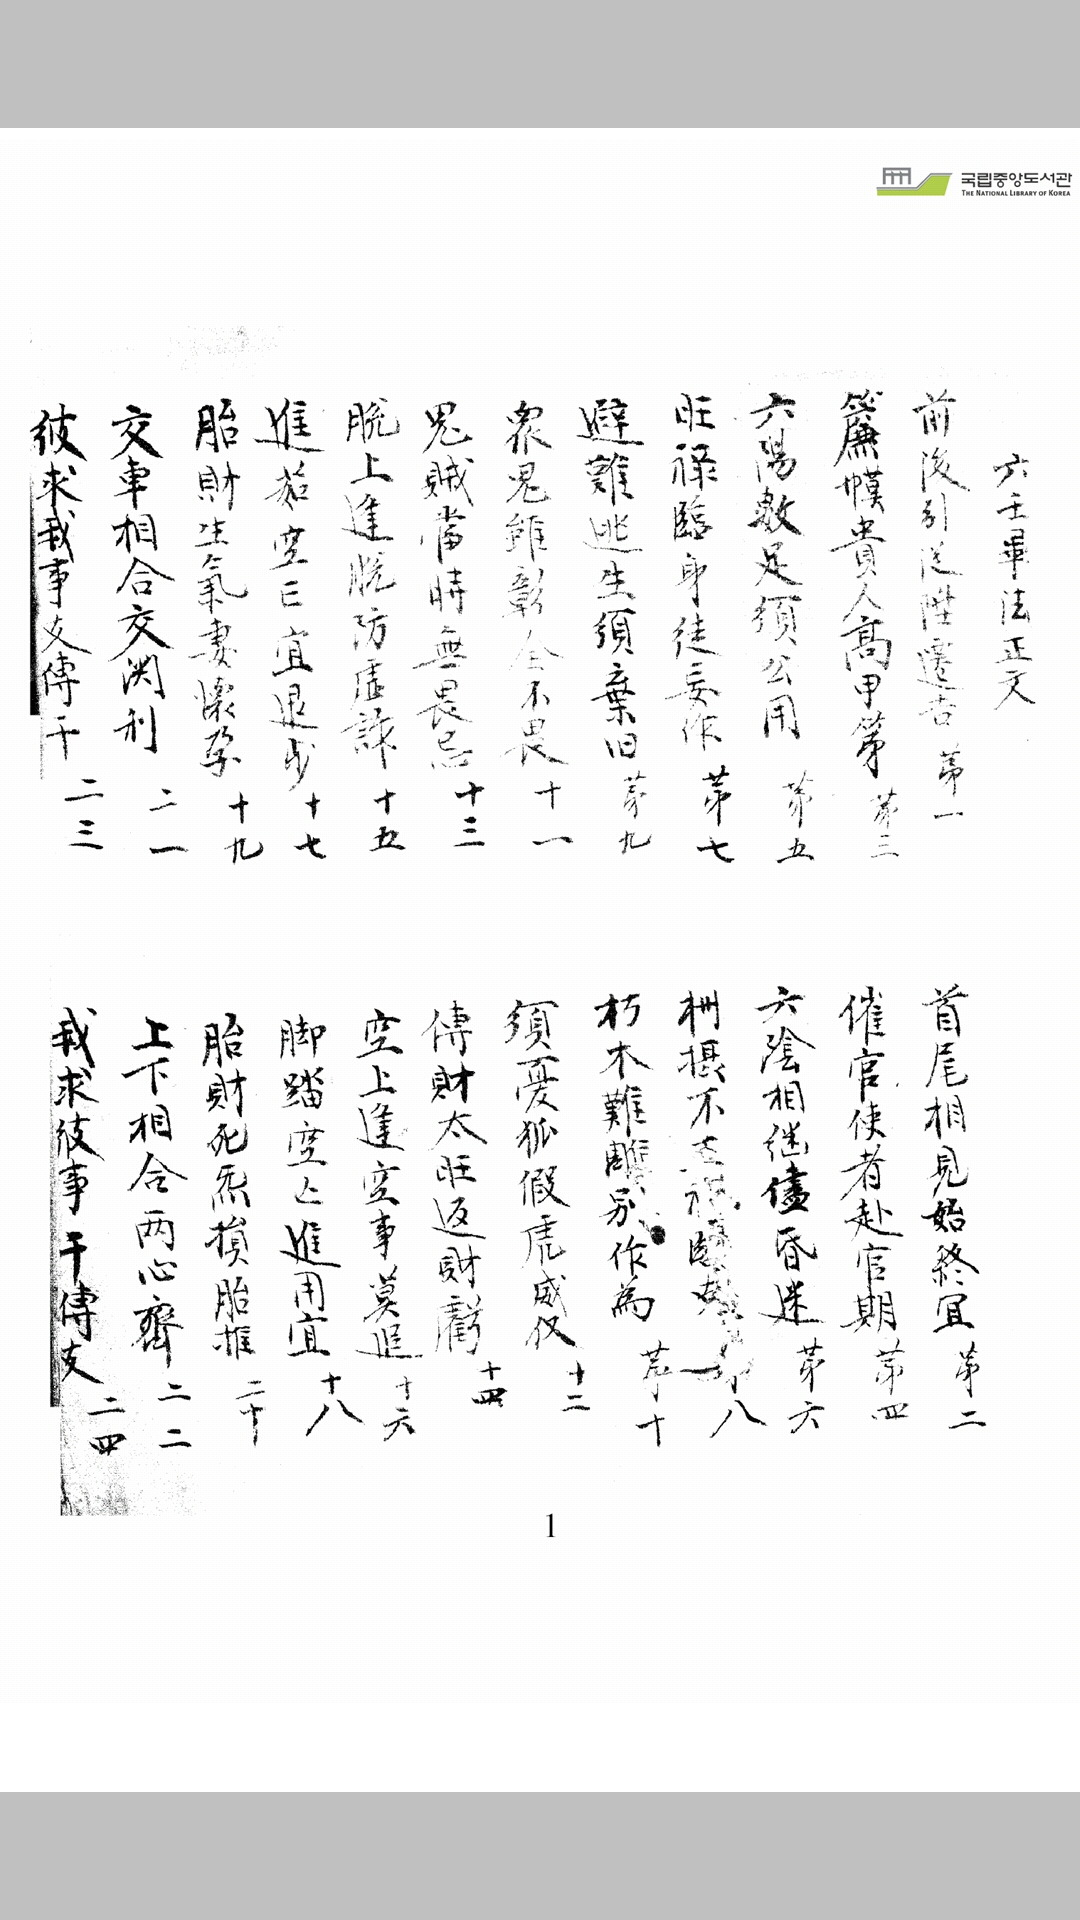 국립중앙도서관
THE NATIONAL LIBRARY OF KOREA
六壬畢法正文
前後引從陞遷吉 第一
首尾相見始終宜 第二
簾幙貴人高甲第 第三
催官使者赴官期 第四
六陽數足須公用 第五
六陰相継儘昏迷 第六
旺祿臨身徒妄作 第七
摄不正祿臨 八
避難逃生須棄旧 第九
朽木難雕別作為 第十
衆鬼雖彰全不畏 十一
須憂狐假虎威仪 十二
鬼賊當時無畏忌 十三
傳財太旺返財虧 十四
脫上逢脫防虛詐 十五
空上逢空事莫追 十六
進茹空亡宜退步 十七
脚踏空亡進用宜 十八
胎財生氣妻懷孕 十九
胎財死炁損胎推 二十
交車相合交関利 二一
上下相合两心齊 二二
彼求我事支傳干 二三
我求彼事干傳支 二四
1